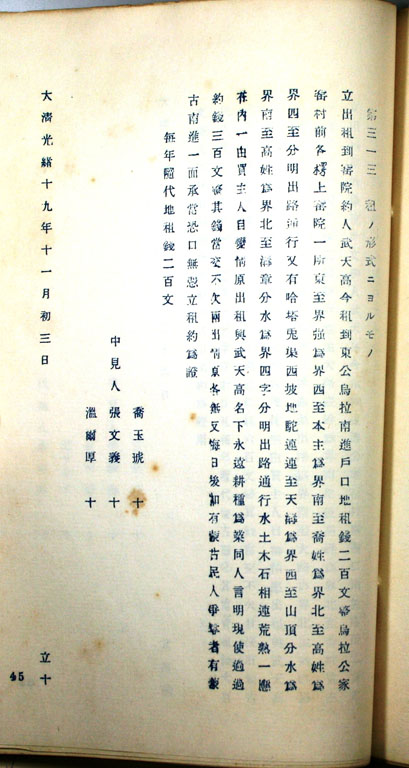 第三一三　租ノ形式ニヨルモノ
立出租到窰院約人武天高今租到東公烏拉南進戶口地租錢二百文寄烏拉公家
窰村前各樗上窰院一所東至界強爲界西至本主爲界南至喬姓爲界北至高姓爲
界四至分明出路通行又有哈塔兎渠西坡地駝連連至天溝爲界西至山頂分水爲
界南至高姓爲界北至溝章分水爲界四字分明出路通行水土木石相連荒熟一應
在內一由買主人自愛情原出租與武天高名下永遠耕種爲業同人言明現使過過
約錢三百文寄其錢當交不欠兩出情原各無反悔日後如有蒙古民人爭奪者有蒙
古南進一面承當恐口無憑立租約爲證
每年隨代地租錢二百文
喬玉琥　十
中見人　張文義　十
溫爾厚　十
大淸光緖十九年十一月初三日　立十
45